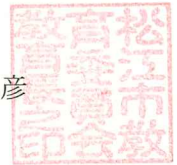 彦
松江市教
育委員会
教育長之印